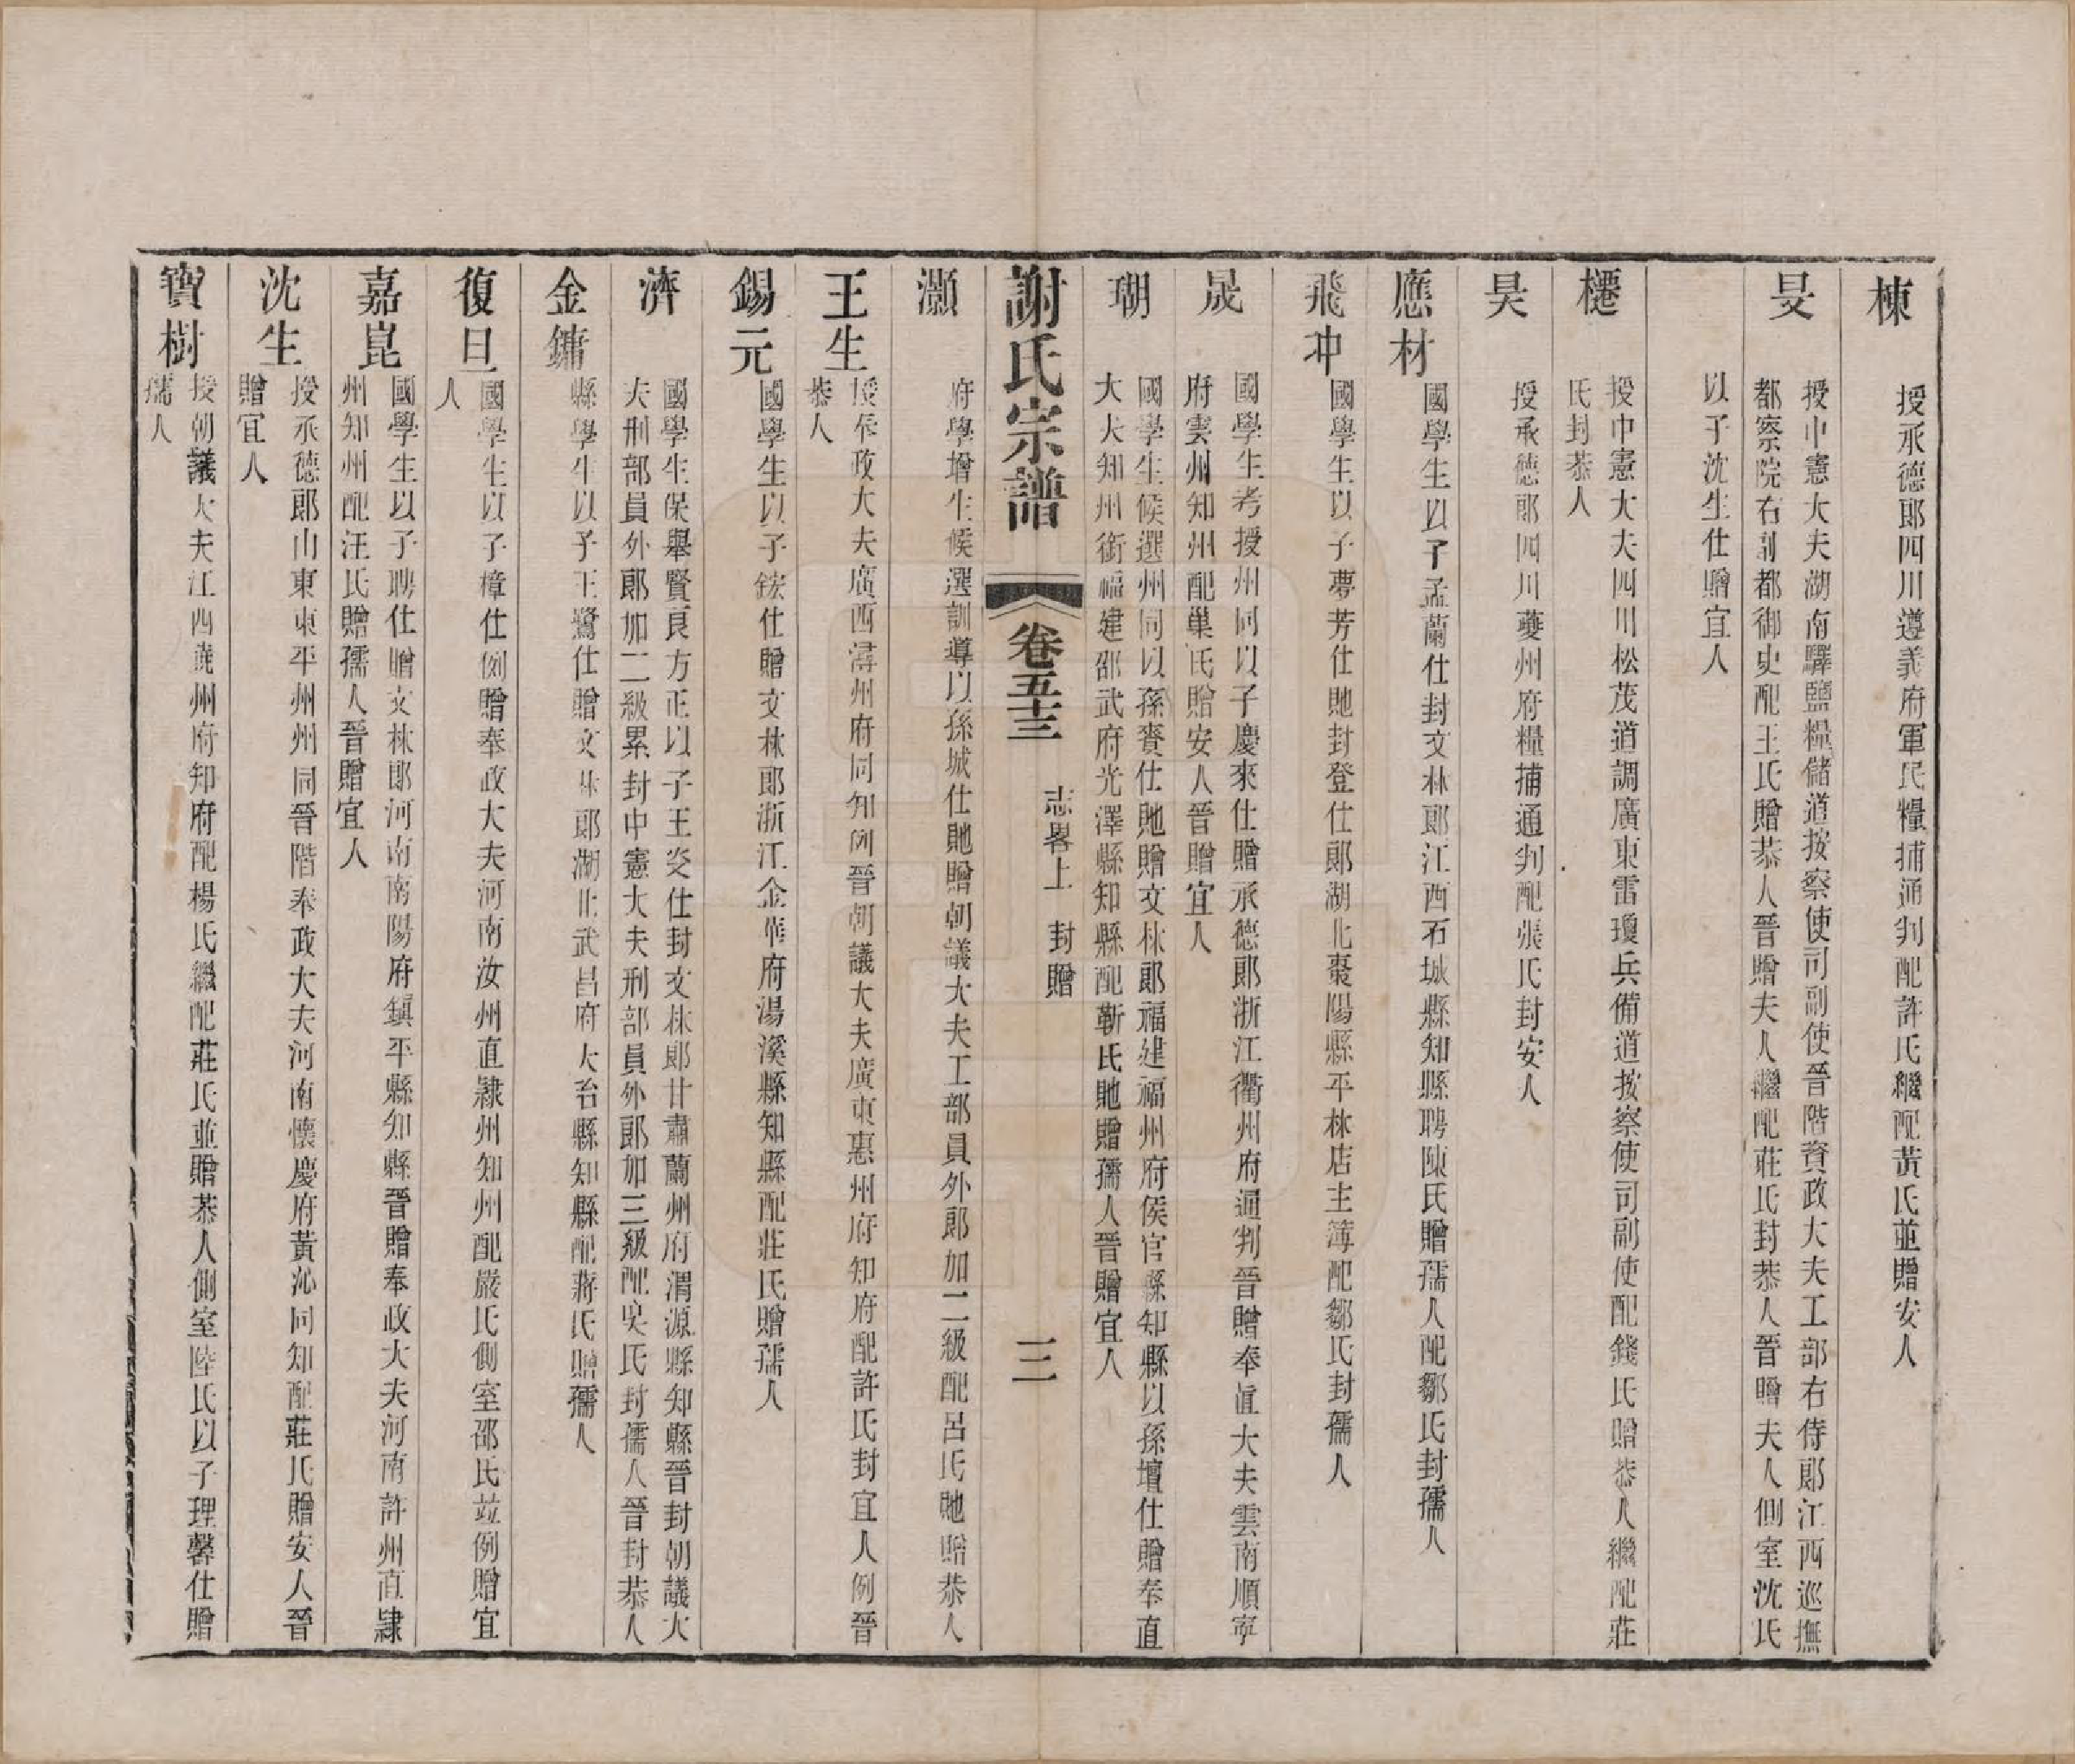 棟
授承德郎四川遵義府軍民糧捕通判配許氏繼配黃氏並贈安人
旻
授中憲大夫湖南驛鹽糧儲道按察使司副使晉階資政大夫工部右侍郎江西巡撫
都察院右副都御史配王氏贈恭人晉贈夫人繼配莊氏封恭人晉贈夫人側室沈氏
以子沈生仕贈宜人
櫏
授中憲大夫四川松茂道調廣東雷瓊兵備道按察使司副使配錢氏贈恭人繼配莊
氏封恭人
昊
授承德郎四川夔州府糧捕通判配張氏封安人
應材
國學生以子孟蘭仕封文林郎江西石城縣知縣聘陳氏贈孺人配鄒氏封孺人
飛冲
國學生以子夢芳仕貤封登仕郎湖北棗陽縣平林店主簿配鄒氏封孺人
晟
國學生考授州同以子慶來仕贈承德郎浙江衢州府通判晉贈奉直大夫雲南順寧
府雲州知州配巢氏贈安人晉贈宜人
瑚
國學生候選州同以孫賚仕貤贈文林郎福建福州府侯官縣知縣以孫壇仕贈奉直
大夫知州銜福建邵武府光澤縣知縣配靳氏貤贈孺人晉贈宜人
謝氏宗譜 卷五十三 志畧上 封贈 三
灝
府學增生候選訓導以孫城仕貤贈朝議大夫工部員外郎加二級配呂氏貤贈恭人
王生
授奉政大夫廣西潯州府同知例晉朝議大夫廣東惠州府知府配許氏封宜人例晉
恭人
錫元
國學生以子鋐仕贈文林郎浙江金華府湯溪縣知縣配莊氏贈孺人
濟
國學生保舉賢良方正以子王炎仕封文林郎甘肅蘭州府渭源縣知縣晉封朝議大
夫刑部員外郎加二級累封中憲大夫刑部員外郎加三級配吳氏封孺人晉封恭人
金鏞
縣學生以子王鷺仕贈文林郎湖北武昌府大冶縣知縣配蔣氏贈孺人
復旦
國學生以子樟仕例贈奉政大夫河南汝州直隸州知州配嚴氏側室邵氏竝例贈宜
人
嘉崑
國學生以子聘仕贈文林郎河南南陽府鎮平縣知縣晉贈奉政大夫河南許州直隸
州知州配汪氏贈孺人晉贈宜人
沈生
授承德郎山東東平州州同晉階奉政大夫河南懷慶府黃沁同知配莊氏贈安人晉
贈宜人
寶樹
授朝議大夫江西饒州府知府配楊氏繼配莊氏並贈恭人側室陸氏以子理馨仕贈
孺人